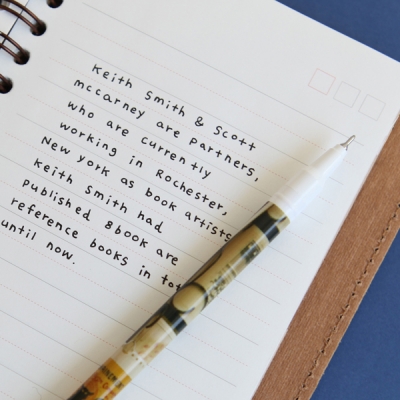 Keith Smith & Scott
mccarney are partners,
who are currently
working in Rochester,
New york as book artists
Keith Smith had
published 8book are
reference books in tot
until now.